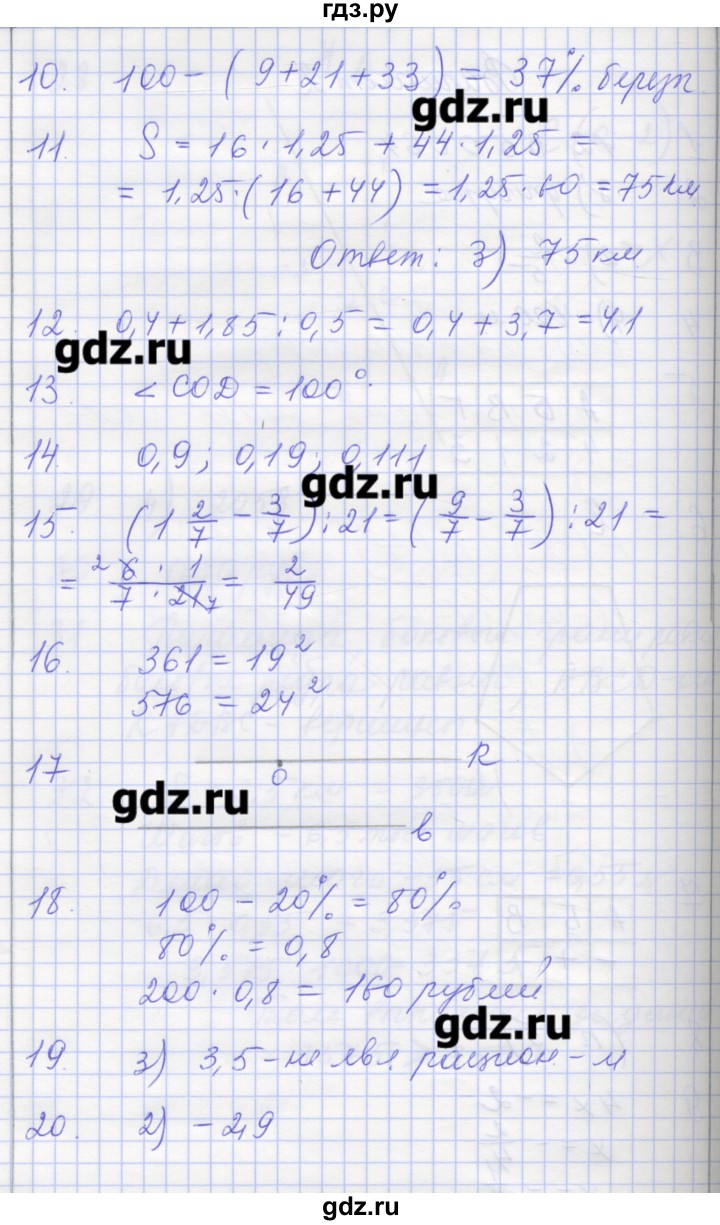 гдз.ру
10. 100 - (9+21+33) = 37% берёз
gdz.ru
11. S = 16 · 1,25 + 44 · 1,25 =
= 1,25 · (16 + 44) = 1,25 · 60 = 75 км
Ответ: 3) 75 км
12. 0,4 + 1,85 : 0,5 = 0,4 + 3,7 = 4,1
gdz.ru
13. < COD = 100°.
14. 0,9; 0,19; 0,111
gdz.ru
15. (1 2/7 - 3/7) : 21 = (9/7 - 3/7) : 21 =
= 2 6 · 1 / 7 · 21 7 = 2/49
16. 361 = 19²
576 = 24²
17 O k
gdz.ru
b
18. 100 - 20% = 80%
80% = 0,8
200 · 0,8 = 160 рублей
gdz.ru
19. 3) 3,5 - не явл рацион-м
20. 2) -2,9
gdz.ru